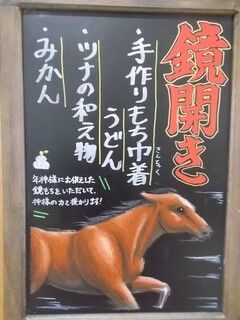 鏡開き
・手作りもち巾着
きんちゃく
うどん
・ツナの和え物
・みかん
年神様にお供えした
鏡もちをいただいて、
神様の力を授かります!